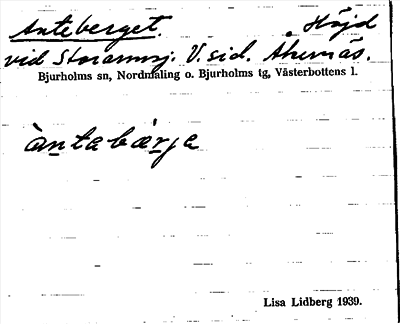 Anteberget. Höjd
vid Storarmsj. V. sid. Åkernäs.
Bjurholms sn, Nordmaling o. Bjurholms tg, Västerbottens l.
àntabǽrja
Lisa Lidberg 1939.